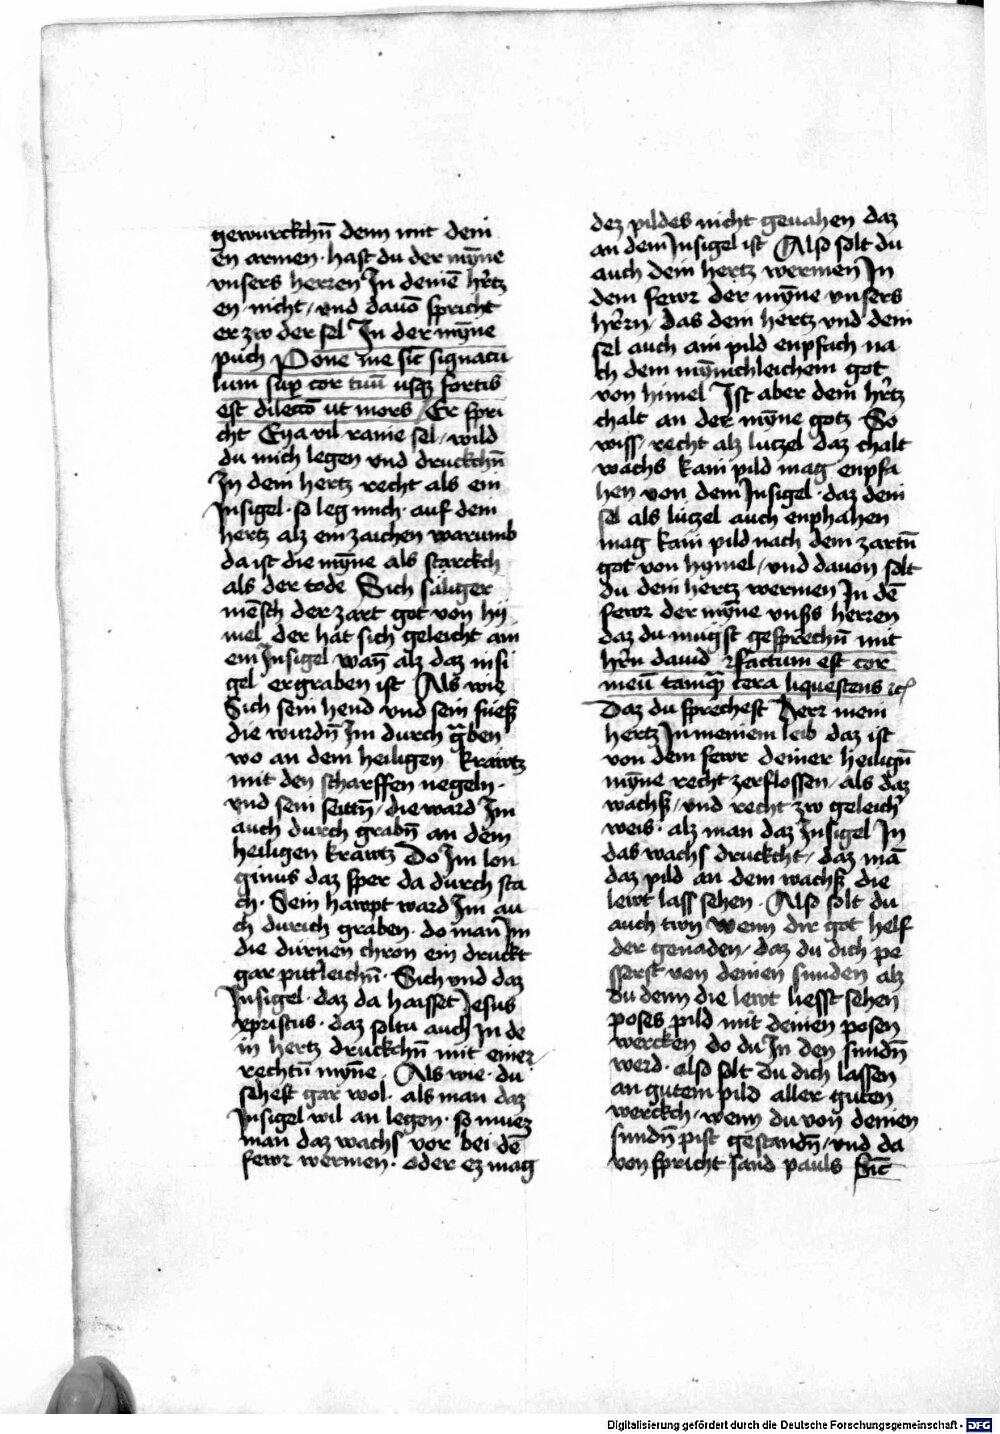 gewurckchn̄ denn mit dein
en armen · hast du der mȳne
vnsers herren In deinē hr̄tz
en · nicht / vnd dauō spricht
er zw der sel In der mȳne
puch Pone me sic̄ signacu
lum sup̱ cor tuū usqꝫ fortis
est dilectō ut mors / Er spri
cht Eya vil raine sel / wild
du mich legen vnd druckchn̄
In dem hertz recht als ein
Insigel · so leg mich · auf dein
hertz alz ein zaichen warumb
da ist die mȳne als starckch
als der tode Sich säliger
mēsch der zart got von hy
mel der hat sich geleicht am
ein Insigel wan̄ alz daz insi
gel ergraben ist Als wie
Sich sein hend vnd sein füesz
die wurdn̄ Im durch graben
wo an dem heiligen krawtz
mit den scharffen negeln ·
vnd sein seittn̄ / die ward Im
auch durch grabn̄ an dem
heiligen krawtz Do Im lon
ginus daz sper da durch sta
ch · Sein hawpt ward Im au
ch durich graben · do man Im
die dürnen chron ein druckt
gar pittleichn̄ · Sich vnd daz
Insigel · daz da haisset Jesus
xpristus · daz soltu auch In de
in hertz druckchn̄ mit einer
rechtn̄ mȳne · Als wie · du
sihest gar wol · als man daz
Insigel wil an legen · so muez
man daz wachs vor bei dē
fewr wermen · oder ez mag
dez pildes nicht geuahen daz
an dem Insigel ist Also solt du
auch dein hertz wermen In
dem fewr der mȳne vnsers
hr̄rn / das dein hertz vnd dein
sel auch ain pild enpfach na
ch dem mȳnichleichem got
von himel Ist aber dein hr̄tz
chalt an der mȳne gotz So
wiss / recht alz lutzel daz chalt
wachs kain pild mag enpfa
hen von dem Insigel · daz dein
sel als lützel auch enphahen
mag kain pild nach dem zartn̄
got von hymel / vnd dauon solt
du dein hertz wermen In dē
fewr der mȳne vnsers herren
daz du mugst gesprechn̄ mit
hr̄n dauid factum est cor
meū tamq̄ cera liquescens ⁊c̄
Daz du sprechest Herr mein
hertz In meinem leib daz ist
von dem fewr deiner heilign̄
mȳne recht zerflossen / als daz
wachs / vnd recht zw geleich̄
weis · alz man daz Insigel In
das wachs druckcht / daz mā
daz pild an dem wachs die
lewt lass sehen · Also solt du
auch twn wenn dir got helf
der genaden / daz du dich pe
sserst von deinen sunden alz
du denn die lewt liesst sehen
poses pild mit deinen posen
wercken do du In den sundn̄
werd · also solt du dich lassen
an gutem pild aller guten
werckch / wenn du von deinen
sundn̄ pist gestandn̄ / vnd da
von spricht sand pauls Sic̄
Digitalisierung gefördert durch die Deutsche Forschungsgemeinschaft - DFG